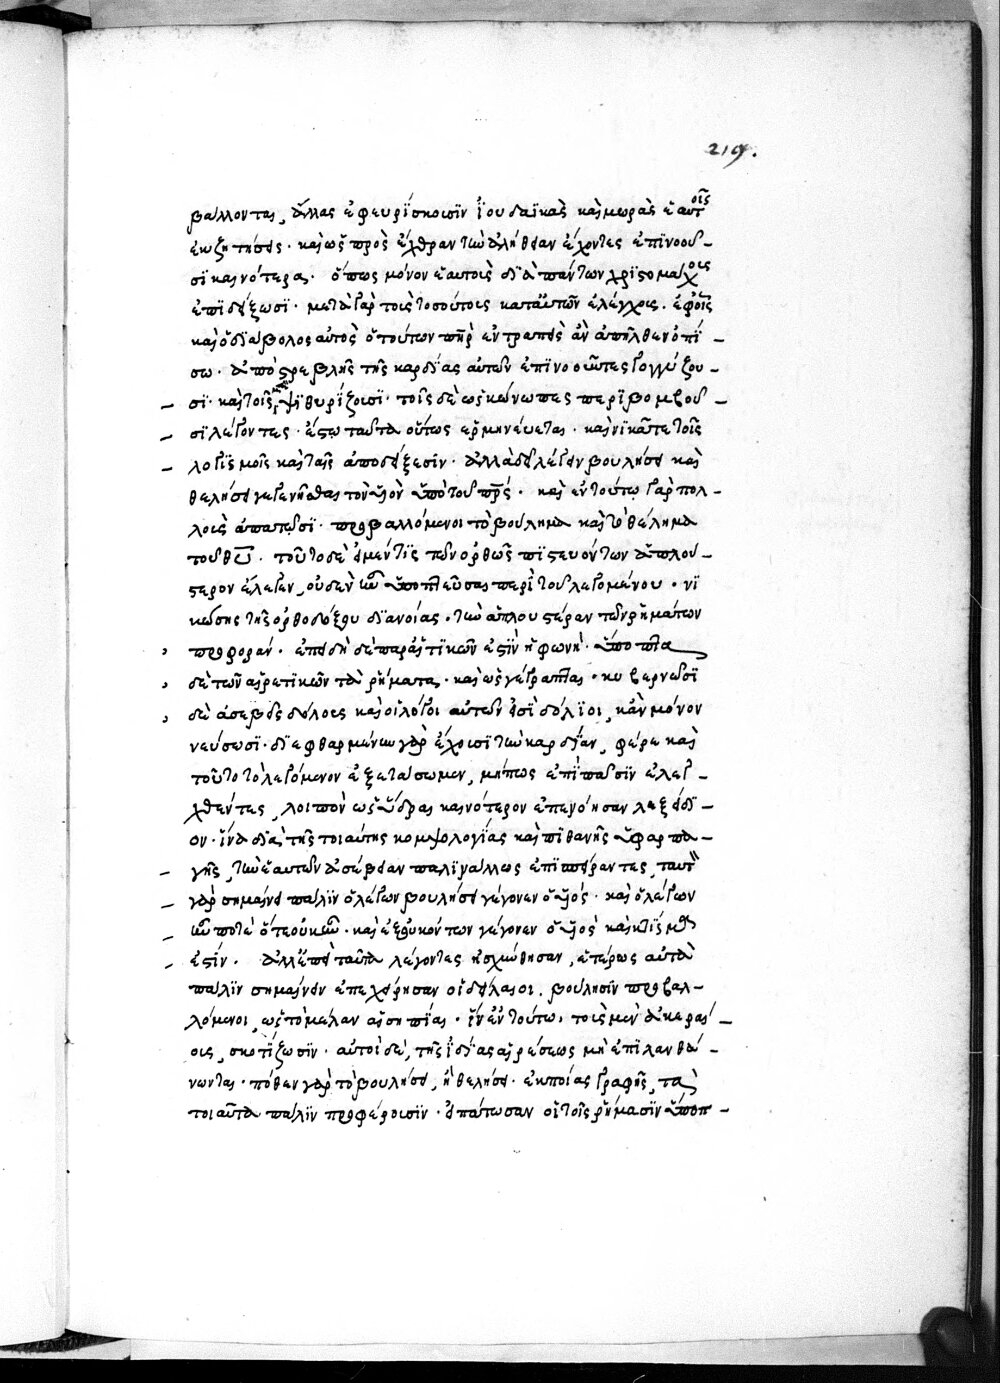 219.
βάλλονται, ἄλλας ἐφευρίσκουσιν ἰουδαϊκὰς καὶ μωρὰς ἑαυτοῖς
ἐκζητήσεις· καὶ ὡς πρὸς ἔχθραν τὴν ἀλήθειαν ἔχοντες ἐπινοοῦ-
σι καινότερα· ὅπως μόνον ἑαυτοὺς διὰ πάντων χριστομάχους
ἐπιδείξωσι· μετὰ γὰρ τοὺς τοσούτους κατ' αὐτῶν ἐλέγχους. ἐφ' οἷς
καὶ ὁ διάβολος αὐτὸς ὁ τούτων πὴρ ἐντραπεὶς ἂν ἀπῆλθεν ὀπί-
σω· ἀπὸ στρεβλῆς τῆς καρδίας αὐτῶν ἐπινοοῦντες γογγύζου-
σι· καὶ τοῖς μὲν ψιθυρίζουσι· τοῖς δὲ ὡς κώνωπες περιβομβοῦ-
σι λέγοντες· ἔστω ταῦτα οὕτως ἑρμηνεύεται· καὶ νικᾶτε τοῖς
λογισμοῖς καὶ ταῖς ἀποδείξεσιν· ἀλλὰ δεῖ λέγειν βουλήσει καὶ
θελήσει γεγενῆσθαι τὸν υἱὸν ὑπὸ τοῦ πρς· καὶ ἐν τούτῳ γὰρ πολ-
λοὺς ἀπατῶσι· προβαλλόμενοι τὸ βούλημα καὶ τὸ θέλημα
τοῦ θυ. τοῦτο δὲ εἰ μέν τις τῶν ὀρθῶς πιστευόντων ἁπλού-
στερον ἔλεγεν, οὐδὲν ἦν ὑποπτεῦσαι περὶ τοῦ λεγομένου· νι
κώσης τῆς ὀρθοδόξου διανοίας· τὴν ἁπλουστέραν τῶν ῥημάτων
προφοράν· ἐπειδὴ δὲ παρ' αἱρετικῶν ἐστὶν ἡ φωνή· ὕποπτα
δὲ τῶν αἱρετικῶν τὰ ῥήματα· καὶ ὡς γέγραπται· κυβερνῶσι
δὲ ἀσεβεῖς δόλους καὶ οἱ λόγοι αὐτῶν εἰσὶ δόλιοι, κἂν μόνον
νεύσωσι· διεφθαρμένην γὰρ ἔχουσι τὴν καρδίαν, φέρε καὶ
τοῦτο τὸ λεγόμενον ἐξετάσωμεν, μήπως ἐπὶ πᾶσιν ἐλεγ-
χθέντες, λοιπὸν ὡς ὕδρας καινότερον ἐπενόησαν λεξείδι-
ον· ἵνα διὰ τῆς τοιαύτης κομψολογίας καὶ πιθανῆς ὑφαρπα-
γῆς, τὴν ἑαυτῶν ἀσέβειαν πάλιν ἄλλως ἐπισπείραντες, ταυτὸν
γὰρ σημαίνει πάλιν ὁ λέγων βουλήσει γέγονεν ὁ υἱός· καὶ ὁ λέγων
ἦν ποτὲ ὅτε οὐκ ἦν· καὶ ἐξ οὐκ ὄντων γέγονεν ὁ υἱὸς καὶ κτίσμα
ἐστίν. ἀλλ' ἐπεὶ ταῦτα λέγοντες ᾐσχύνθησαν, ἑτέρως αὐτὰ
πάλιν σημαίνειν ἐπεχείρησαν οἱ δείλαιοι. βούλησιν προβαλ-
λόμενοι, ὡς τὸ μέλαν αἱ σηπίαι· ἵν' ἐν τούτῳ, τοὺς μὲν ἀκεραί-
ους, σκοτίζωσιν· αὐτοὶ δὲ, τῆς ἰδίας αἱρέσεως μὴ ἐπιλανθά-
νωνται· πόθεν γὰρ τὸ βουλήσει, ἢ θελήσει· ἐκ ποίας γραφῆς, τὰ
τοιαῦτα πάλιν προφέρουσιν· εἰπάτωσαν οἱ τοῖς ῥήμασιν ὕποπ-